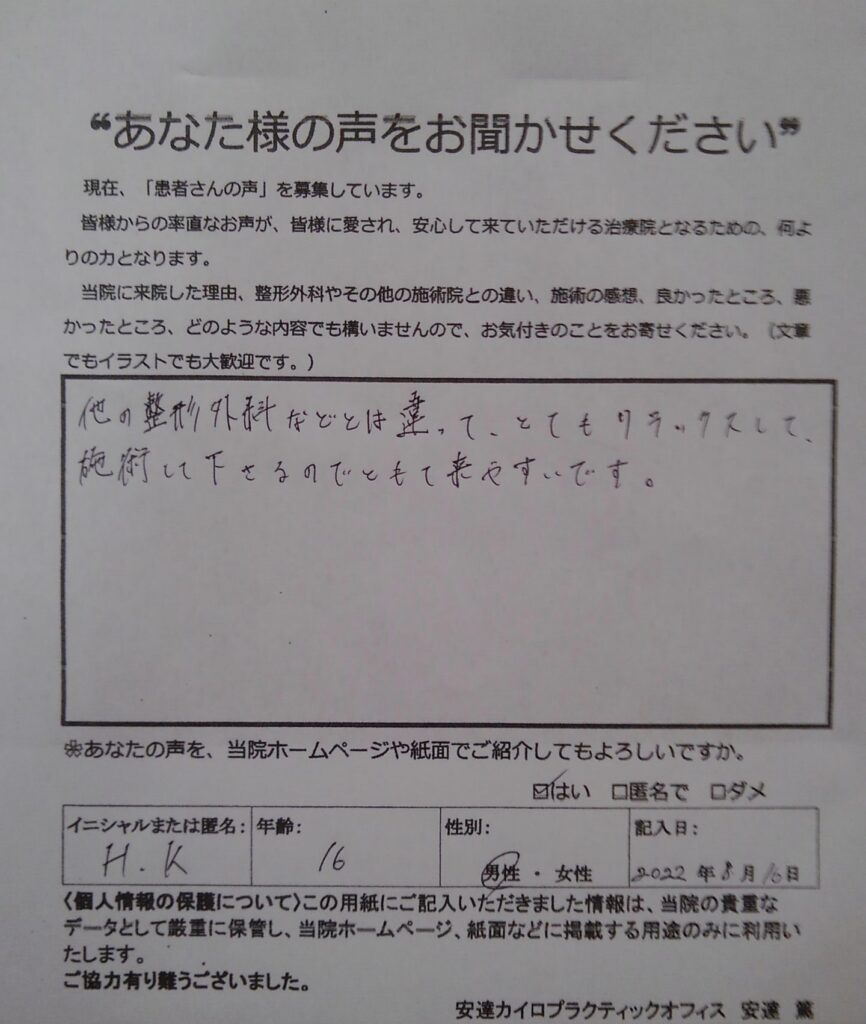 “あなた様の声をお聞かせください”
現在、「患者さんの声」を募集しています。
皆様からの率直なお声が、皆様に愛され、安心して来ていただける治療院となるための、何よ
りの力となります。
当院に来院した理由、整形外科やその他の施術院との違い、施術の感想、良かったところ、悪
かったところ、どのような内容でも構いませんので、お気付きのことをお寄せください。（文章
でもイラストでも大歓迎です。）
他の整形外科などとは違って、とてもリラックスして、
施術して下さるのでともて来やすいです。
※あなたの声を、当院ホームページや紙面でご紹介してもよろしいですか。
☑はい　□匿名で　□ダメ
イニシャルまたは匿名: 年齢: 性別: 記入日:
H.K 16 男性 ・ 女性 2022 年 8 月 16 日
〈個人情報の保護について〉この用紙にご記入いただきました情報は、当院の貴重な
データとして厳重に保管し、当院ホームページ、紙面などに掲載する用途のみに利用い
たします。
ご協力有り難うございました。
安達カイロプラクティックオフィス　安達　篤